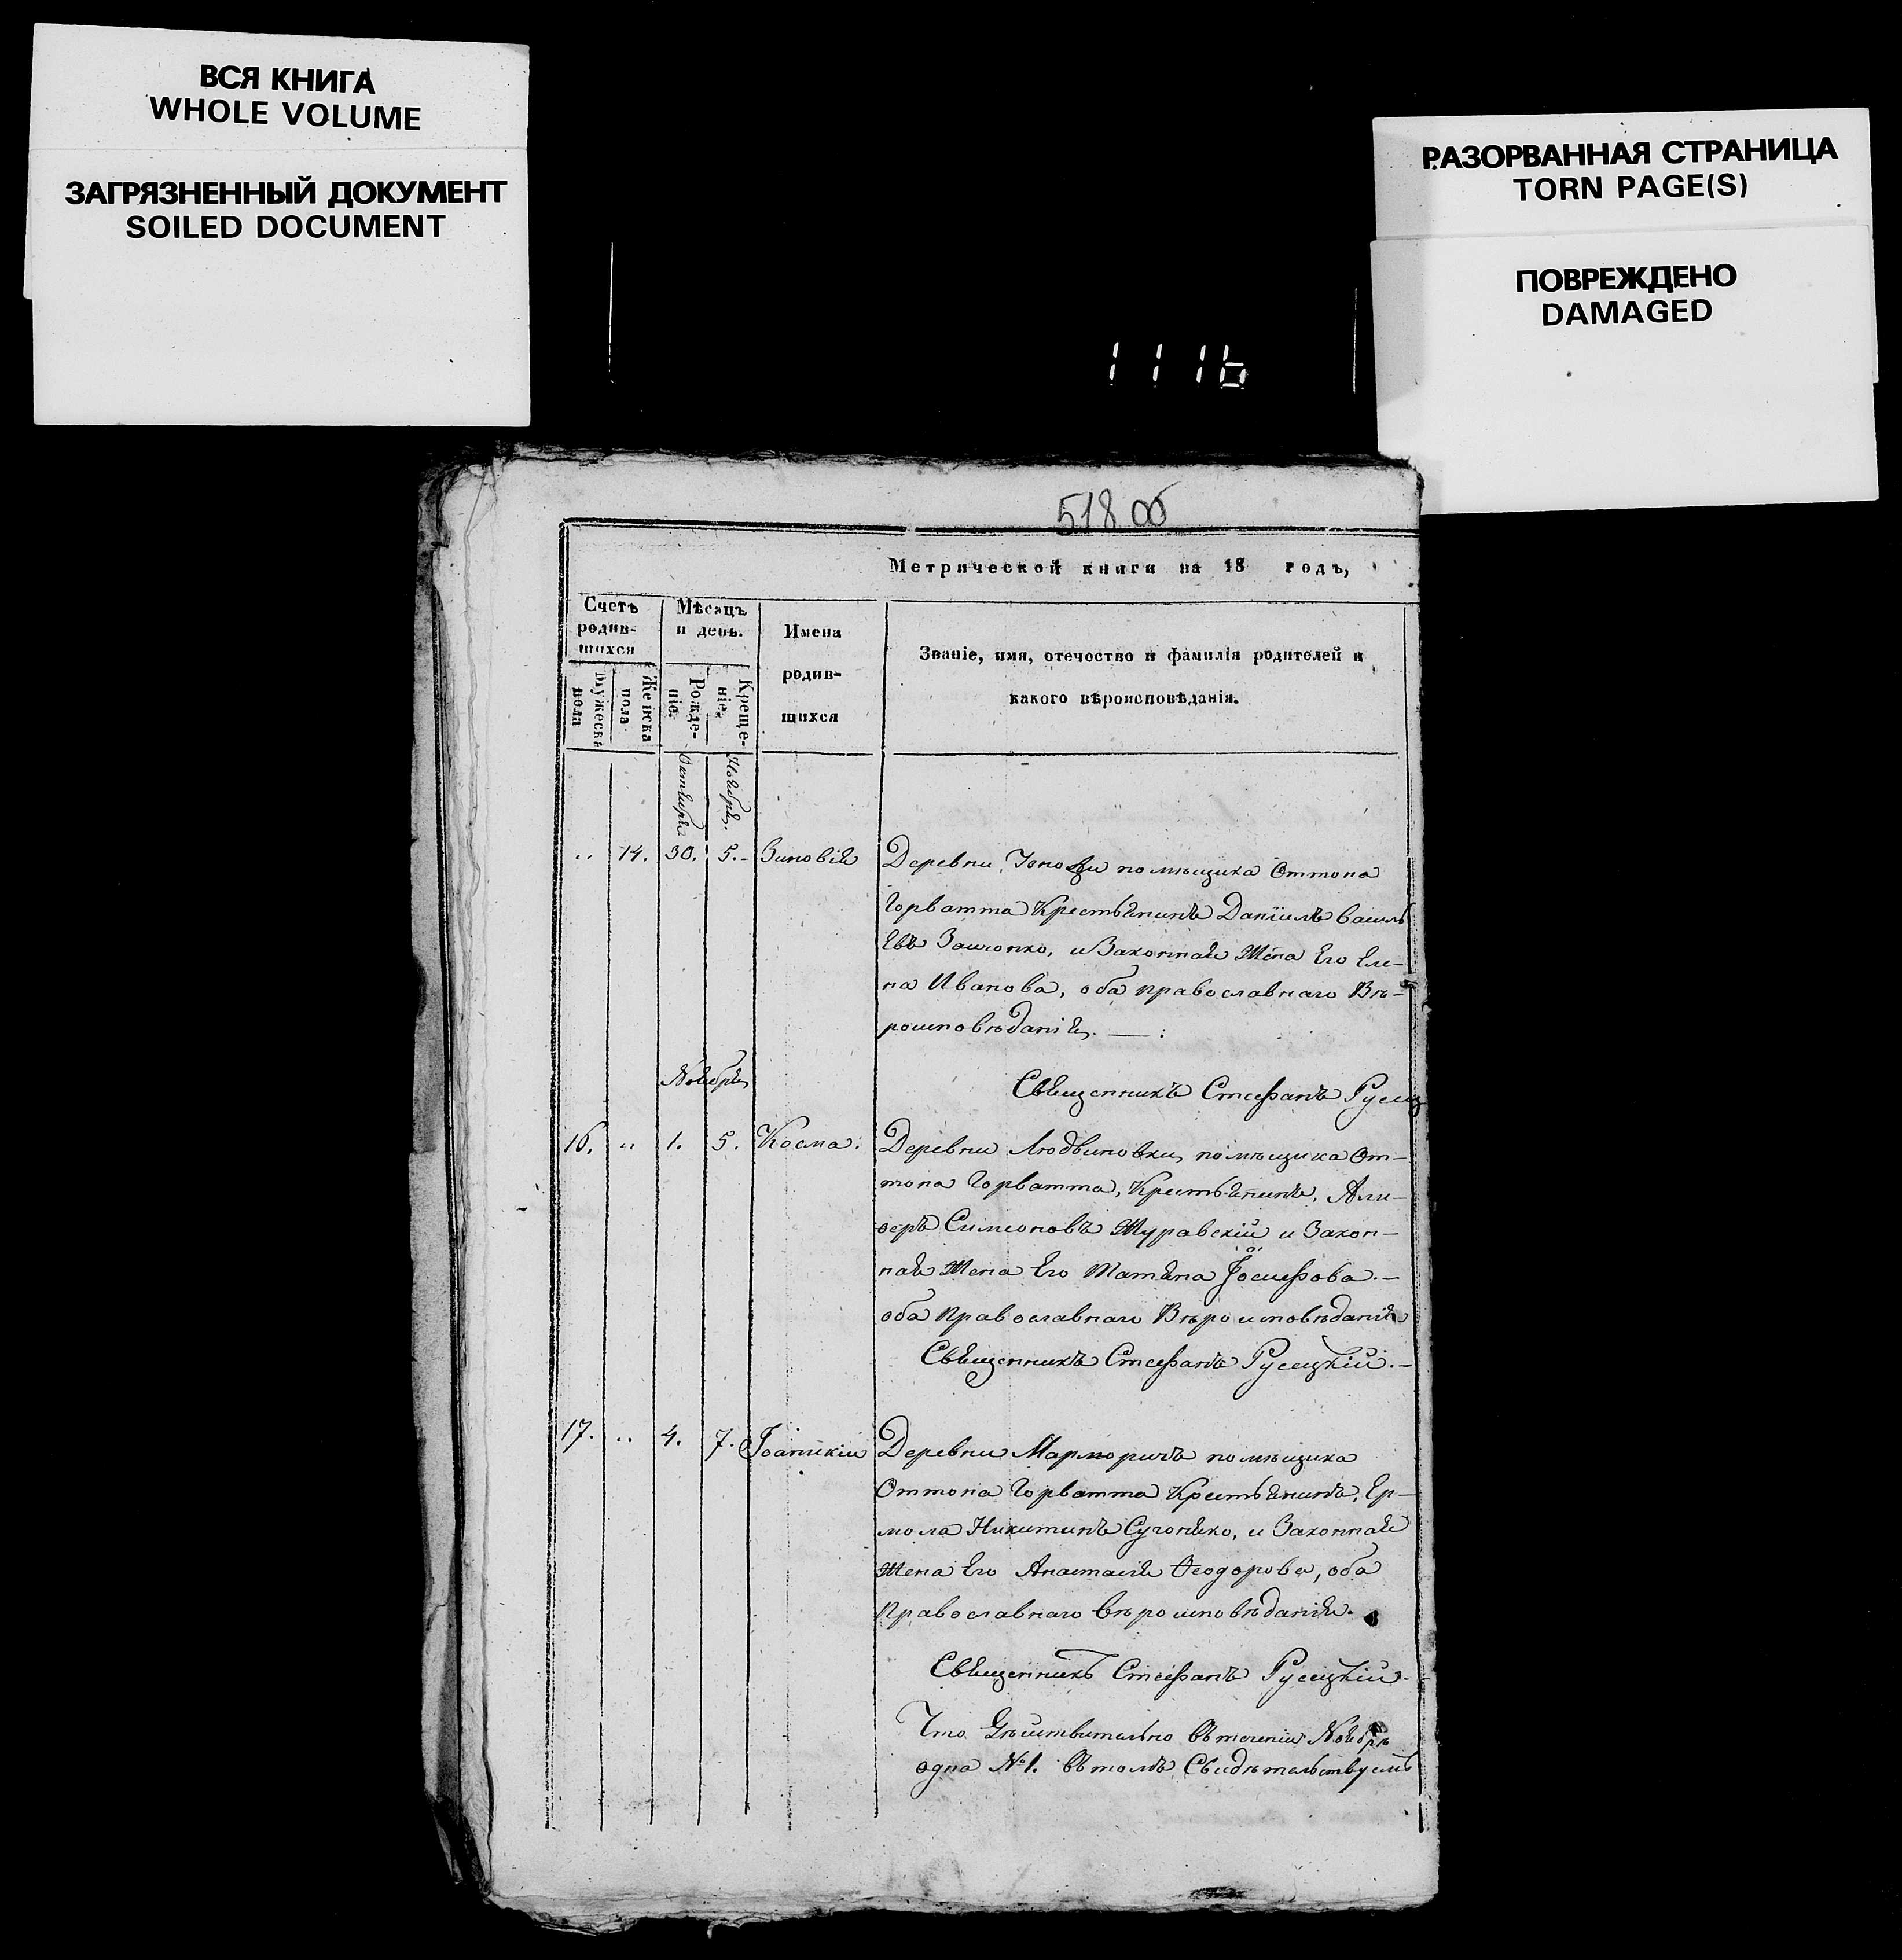 ВСЯ КНИГА
WHOLE VOLUME
ЗАГРЯЗНЕННЫЙ ДОКУМЕНТ
SOILED DOCUMENT
РАЗОРВАННАЯ СТРАНИЦА
TORN PAGE(S)
ПОВРЕЖДЕНО
DAMAGED
1116
518 об
Метрической книги на 18 годъ,
Счетъ родив-шихся
Мѣсяцъ и день.
Имена родив-шихся
Званіе, имя, отечество и фамилія родителей и
какого вѣроисповѣданія.
Мужеска пола
Женска пола
Рожде-ніе.
Креще-ніе.
Октября
Ноября.
.. 14. 30. 5.- Зиновія
Деревни помѣщика Оттона
Горватта Крестьянинъ Даніилъ Василь
евъ и Законная Жена Его Еле-
на Иванова, оба православнаго Вѣ-
роисповѣданія. — :
Священникъ Стефанъ Русец
Ноября
16. .. 1. 5. Косма.
Деревни Людвиновки, помѣщика От-
тона Горватта, Крестьянинъ,
Симеоновъ Журавскій и Закон-
ная Жена Его Татяна Іосифова.—
оба Православнаго Вѣроисповѣданія
Священникъ Стефанъ Русецкій.—
17. .. 4. 7. Іоаникій
Деревни помѣщика
Оттона Горватта Крестьянинъ, Ер-
мола Никитинъ и Законная
Жена Его Анастасія Ѳеодорова, оба
Православнаго вѣроисповѣданія.
Священникъ Стефанъ Русецкій.
Что Дѣйствительно Въ теченіи Ноября
одна №1. Въ томъ Свидѣтельствуемъ